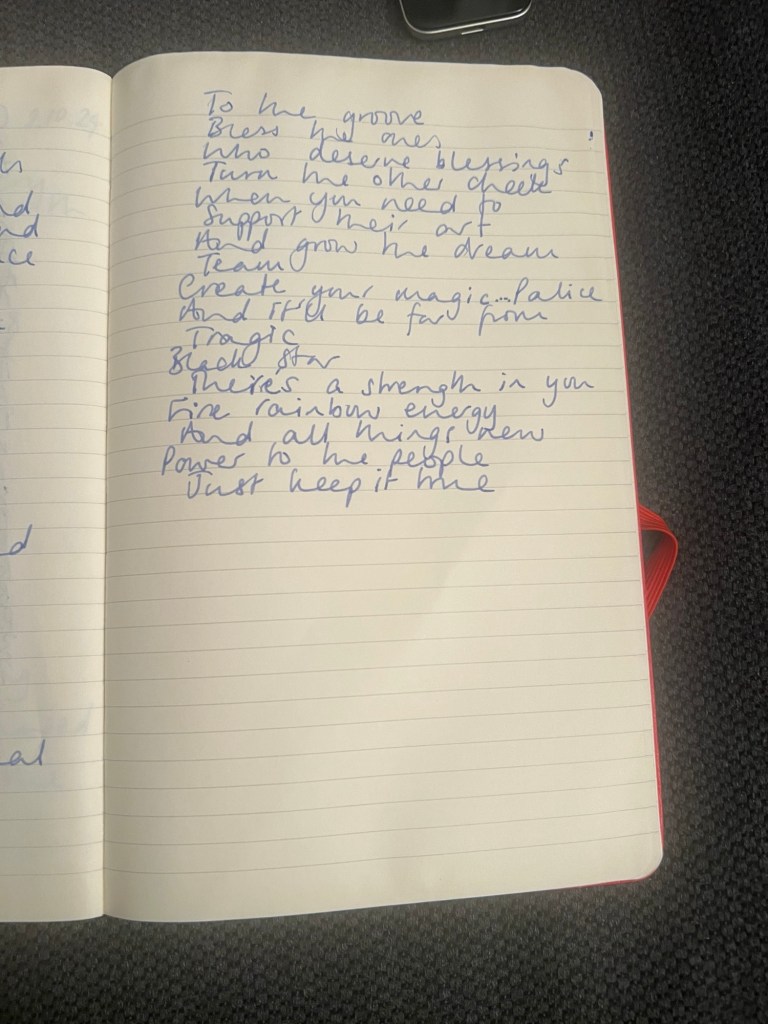 To the groove
Bless the ones
Who deserve blessings
Turn the other cheek
When you need to
Support their art
And grow the dream
Team
Create your magic...Palice
And it'll be far from
Tragic
Black star
There's a strength in you
Fire rainbow energy
And all things new
Power to the people
Just keep it true
nd
nd
ce
d
al